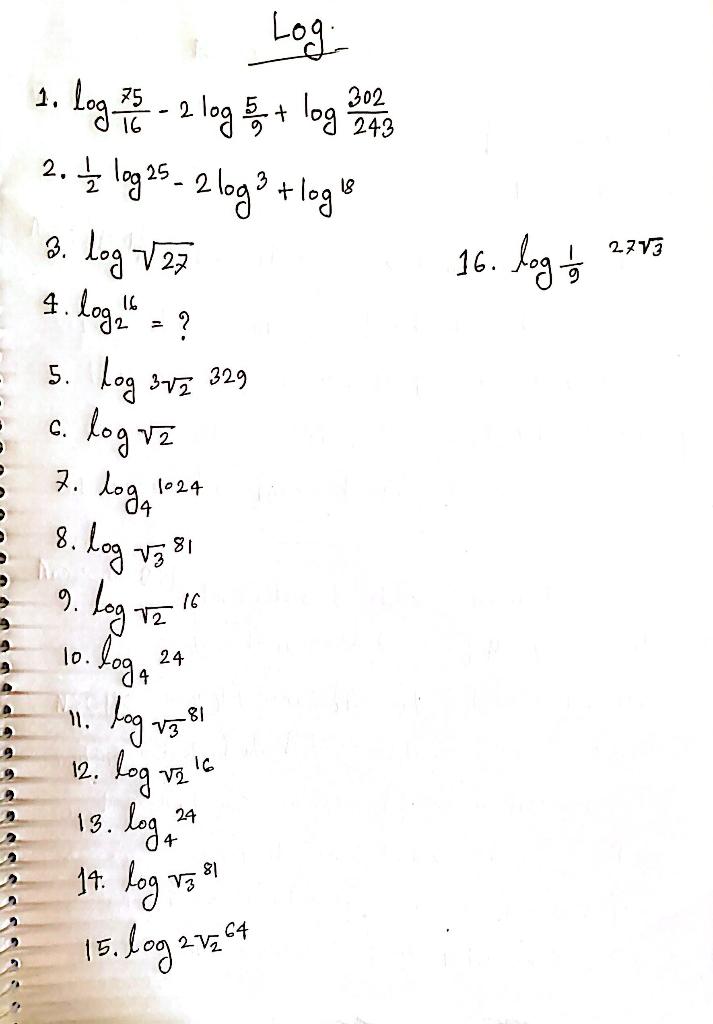 Log.
1. log 75/16 - 2 log 5/9 + log 302/243
2. 1/2 log 25 - 2 log 3 + log 18
3. log √27
4. log₂ 16 = ?
5. log 3√2 329
6. log √2
7. log₄ 1024
8. log √3 81
9. log √2 16
10. log₄ 24
11. log √3 81
12. log √2 16
13. log₄ 24
14. log √3 81
15. log 2√2 64
16. log 1/9 27√3